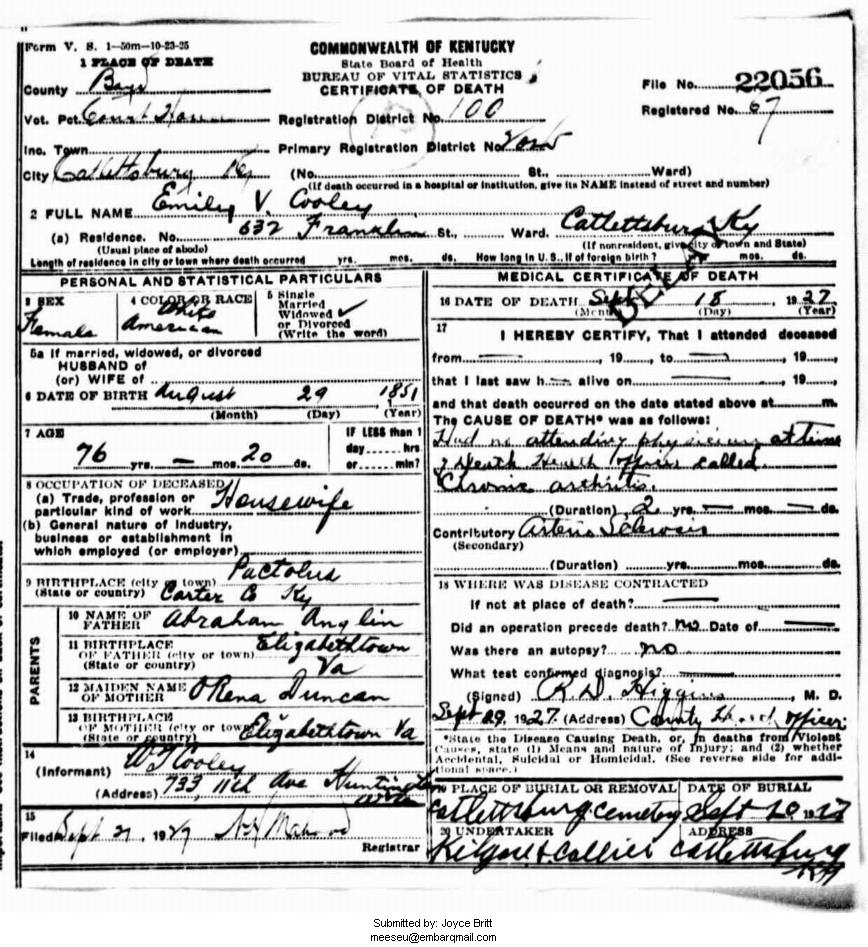 Form V. S. 1—50m—10-23-25
COMMONWEALTH OF KENTUCKY
State Board of Health
BUREAU OF VITAL STATISTICS
CERTIFICATE OF DEATH
1 PLACE OF DEATH
County Boyd
File No. 22056
Vot. Pct. Court House
Registration District No. 100
Registered No. 67
Inc. Town
Primary Registration District No.
City Catlettsburg Ky
(No. St., Ward)
(If death occurred in a hospital or institution, give its NAME instead of street and number)
2 FULL NAME Emily V. Cooley
(a) Residence. No. 632 Franklin St., Ward. Catlettsburg Ky
(Usual place of abode) (If nonresident, give city or town and State)
Length of residence in city or town where death occurred yrs. mos. ds. How long in U. S., if of foreign birth? mos. ds.
DELAY
PERSONAL AND STATISTICAL PARTICULARS
3 SEX
Female
4 COLOR OR RACE
White
American
5 Single
Married
Widowed ✓
or Divorced
(Write the word)
5a If married, widowed, or divorced
HUSBAND of
(or) WIFE of
6 DATE OF BIRTH August 29 1851
(Month) (Day) (Year)
7 AGE
76 yrs. — mos. 20 ds.
IF LESS than 1
day hrs
or min?
8 OCCUPATION OF DECEASED
(a) Trade, profession or
particular kind of work Housewife
(b) General nature of industry,
business or establishment in
which employed (or employer)
9 BIRTHPLACE (city or town) Pactolus
(State or country) Carter Co Ky
PARENTS
10 NAME OF
FATHER Abraham Anglin
11 BIRTHPLACE
OF FATHER (city or town) Elizabethtown
(State or country) Va
12 MAIDEN NAME
OF MOTHER ORena Duncan
13 BIRTHPLACE
OF MOTHER (city or town)
(State or country) Elizabethtown Va
14
(Informant) W T Cooley
(Address) 733, 11th Ave Huntington
W Va
15
Filed Sept 21, 1927
Registrar
MEDICAL CERTIFICATE OF DEATH
16 DATE OF DEATH Sept 18 1927
(Month) (Day) (Year)
17
I HEREBY CERTIFY, That I attended deceased
from — , 19 , to — , 19 ,
that I last saw h— alive on — , 19 ,
and that death occurred on the date stated above at m.
The CAUSE OF DEATH* was as follows:
Had no attending physician at time
of Death Health Officer called.
Chronic arthritis.
(Duration) 2 yrs. — mos. — ds.
Contributory Arterio Sclerosis
(Secondary)
(Duration) yrs. mos. ds.
18 WHERE WAS DISEASE CONTRACTED
If not at place of death? —
Did an operation precede death? no Date of —
Was there an autopsy? no
What test confirmed diagnosis? —
(Signed) R D. Higgins, M. D.
Sept 29, 1927. (Address) County Health Officer
*State the Disease Causing Death, or, in deaths from Violent
Causes, state (1) Means and nature of Injury; and (2) whether
Accidental, Suicidal or Homicidal. (See reverse side for addi-
tional space.)
19 PLACE OF BURIAL OR REMOVAL
Catlettsburg cemetery
DATE OF BURIAL
Sept 20 1927
20 UNDERTAKER
Kilgore & Collier
ADDRESS
Catlettsburg
Ky
Submitted by: Joyce Britt
meeseu@embarqmail.com